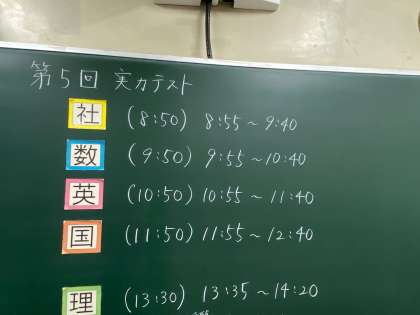 第5回 実力テスト
社 (8:50) 8:55~9:40
数 (9:50) 9:55~10:40
英 (10:50) 10:55~11:40
国 (11:50) 11:55~12:40
理 (13:30) 13:35~14:20